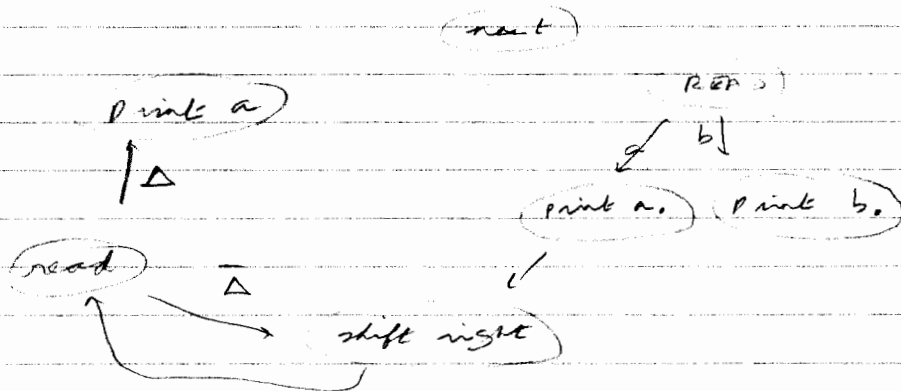 READ
print a
b
Δ
a
print a.
print b.
read
Δ̅
shift right